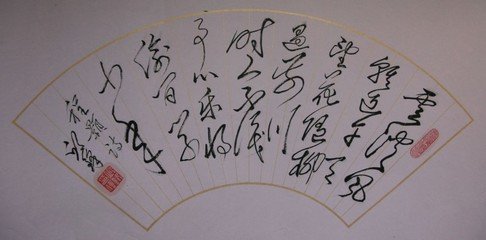 雲淡風
輕近午天
望花隨柳
過前川
時人不識
予心樂將
謂偷閒學
少年
程顥詩